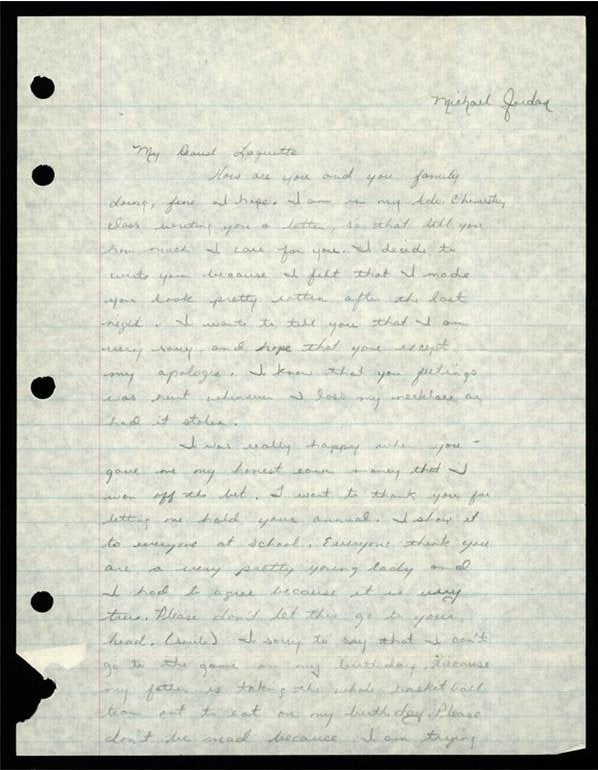 Michael Jordan
My Dearest Laquette
How are you and you family
doing, fine I hope. I am in my Adv. Chemistry
class writing you a letter, so that tell you
how much I care for you. I decide to
write you because I felt that I made
you look pretty rotten after the last
night. I want to tell you that I am
very sorry, and hope that you except
my apologie. I know that you feelings
was hurt whenever I loss my necklace or
had it stolen.
I was really happy when you
gave me my honest earn money that I
won off the bet. I want to thank you for
letting me hold your annual. I show it
to everyone at school. Everyone think you
are a very pretty young lady and
I had to agree because it is very
true. Please don't let this go to your
head. (smile) I sorry to say that I can't
go to the game on my birthday because
my father is taking the whole basketball
team out to eat on my birthday. Please
don't be mad because I am trying